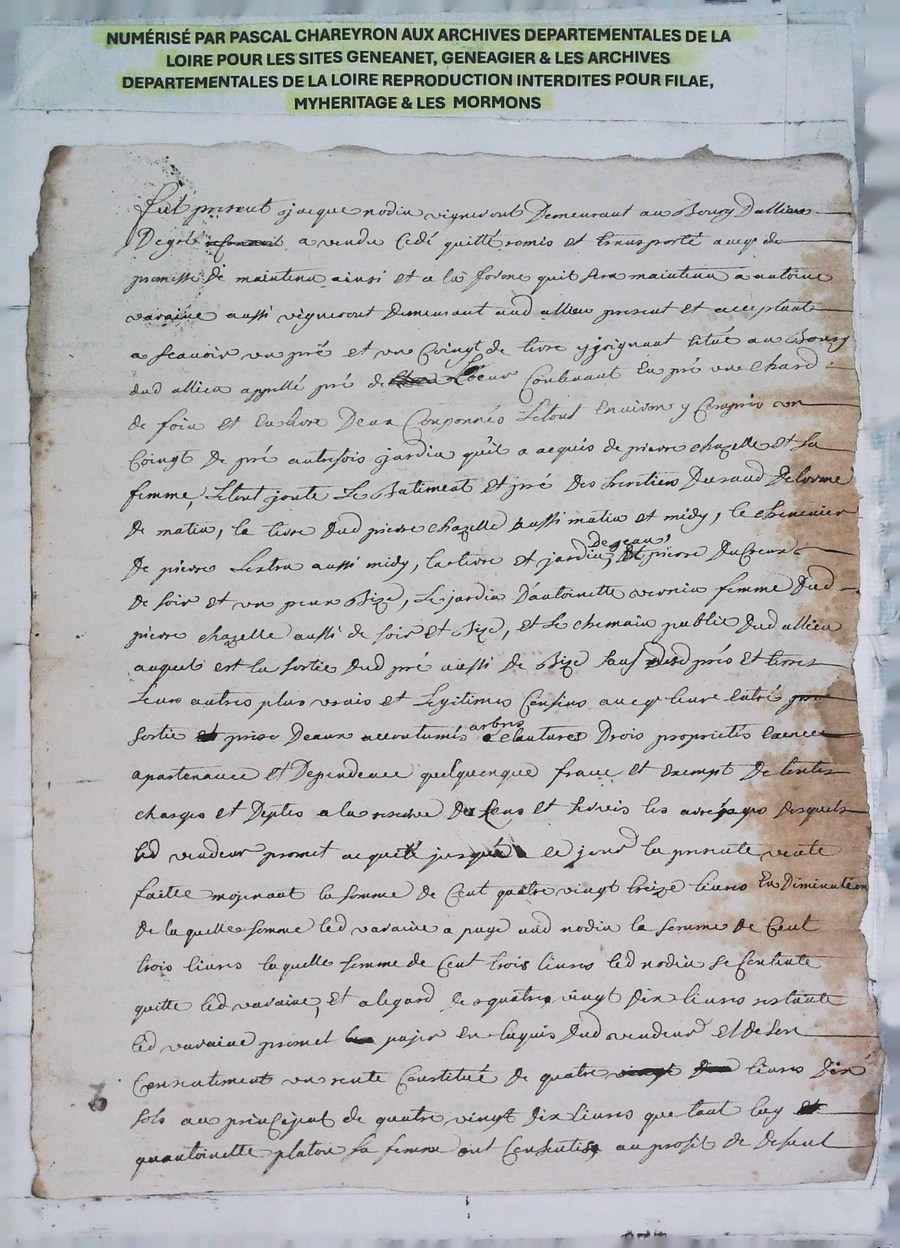 NUMÉRISÉ PAR PASCAL CHAREYRON AUX ARCHIVES DEPARTEMENTALES DE LA
LOIRE POUR LES SITES GENEANET, GENEAGIER & LES ARCHIVES
DEPARTEMENTALES DE LA LOIRE REPRODUCTION INTERDITES POUR FILAE,
MYHERITAGE & LES MORMONS
fut present jacque nodin vigneront Demeurant au Bourg Dallieu
De gré a vendu cedé quitté remis et transporté avecq
promesse de maintenu ainsi et a la forme quil sera maintenu a antoine
varaine aussi vigneront demeurant aud allieu present et acceptant
a scavoir un pré et un Coingt de terre y joignant situé au Bourg
dud allieu appellé pré de Coeur Contenant en pré une chard
de foin et en terre Deux Couponnés le tout environ y Compris un
Coingt de pré autresfois jardin quil a acquis de pierre chazelle et sa
femme, le tout joute le Batiment et pré des heritiers Durand Delorme
de matin, la terre dud pierre chazelle aussi matin et midy, le chenevier
de pierre aussi midy, la terre et jardin, De jean, et pierre Ducreux
de soir et un peux Bize, le jardin D'antoinette vernin femme Dud
pierre chazelle aussi de soir et Bize, et le chemain publie dud allieu
auquel est la sortie dud pré aussi de Bize sauf desd prés et terres
leurs autres plus vrais et legitimes Confins avecq leurs entré
sortie prise Deaux accoutumés arbres clautures Drois proprietés
apartenance et Dependence quelquonque franc et exempt de toutes
charges et Deptes a la reserve du Cens et servis les areragés desquels
led vendeur promet acquité jusqua ce jour la presente vente
faitte mojenant la somme de Cent quatre vingt treize livres En Diminution
de laquelle somme led varaine a payé aud nodin la somme de Cent
trois livres laquelle somme de Cent trois livres led nodin se Contente
quitte led varaine, Et alegard des quatre vingt dix livres restante
led varaine promet pajer en laquis dud vendeur et de son
Consentement un rente Constitué de quatre livres dix
sols au principal de quatre vingt dix livres que tant luy
quantoinette platon sa femme ont Consentis au profit de defunt